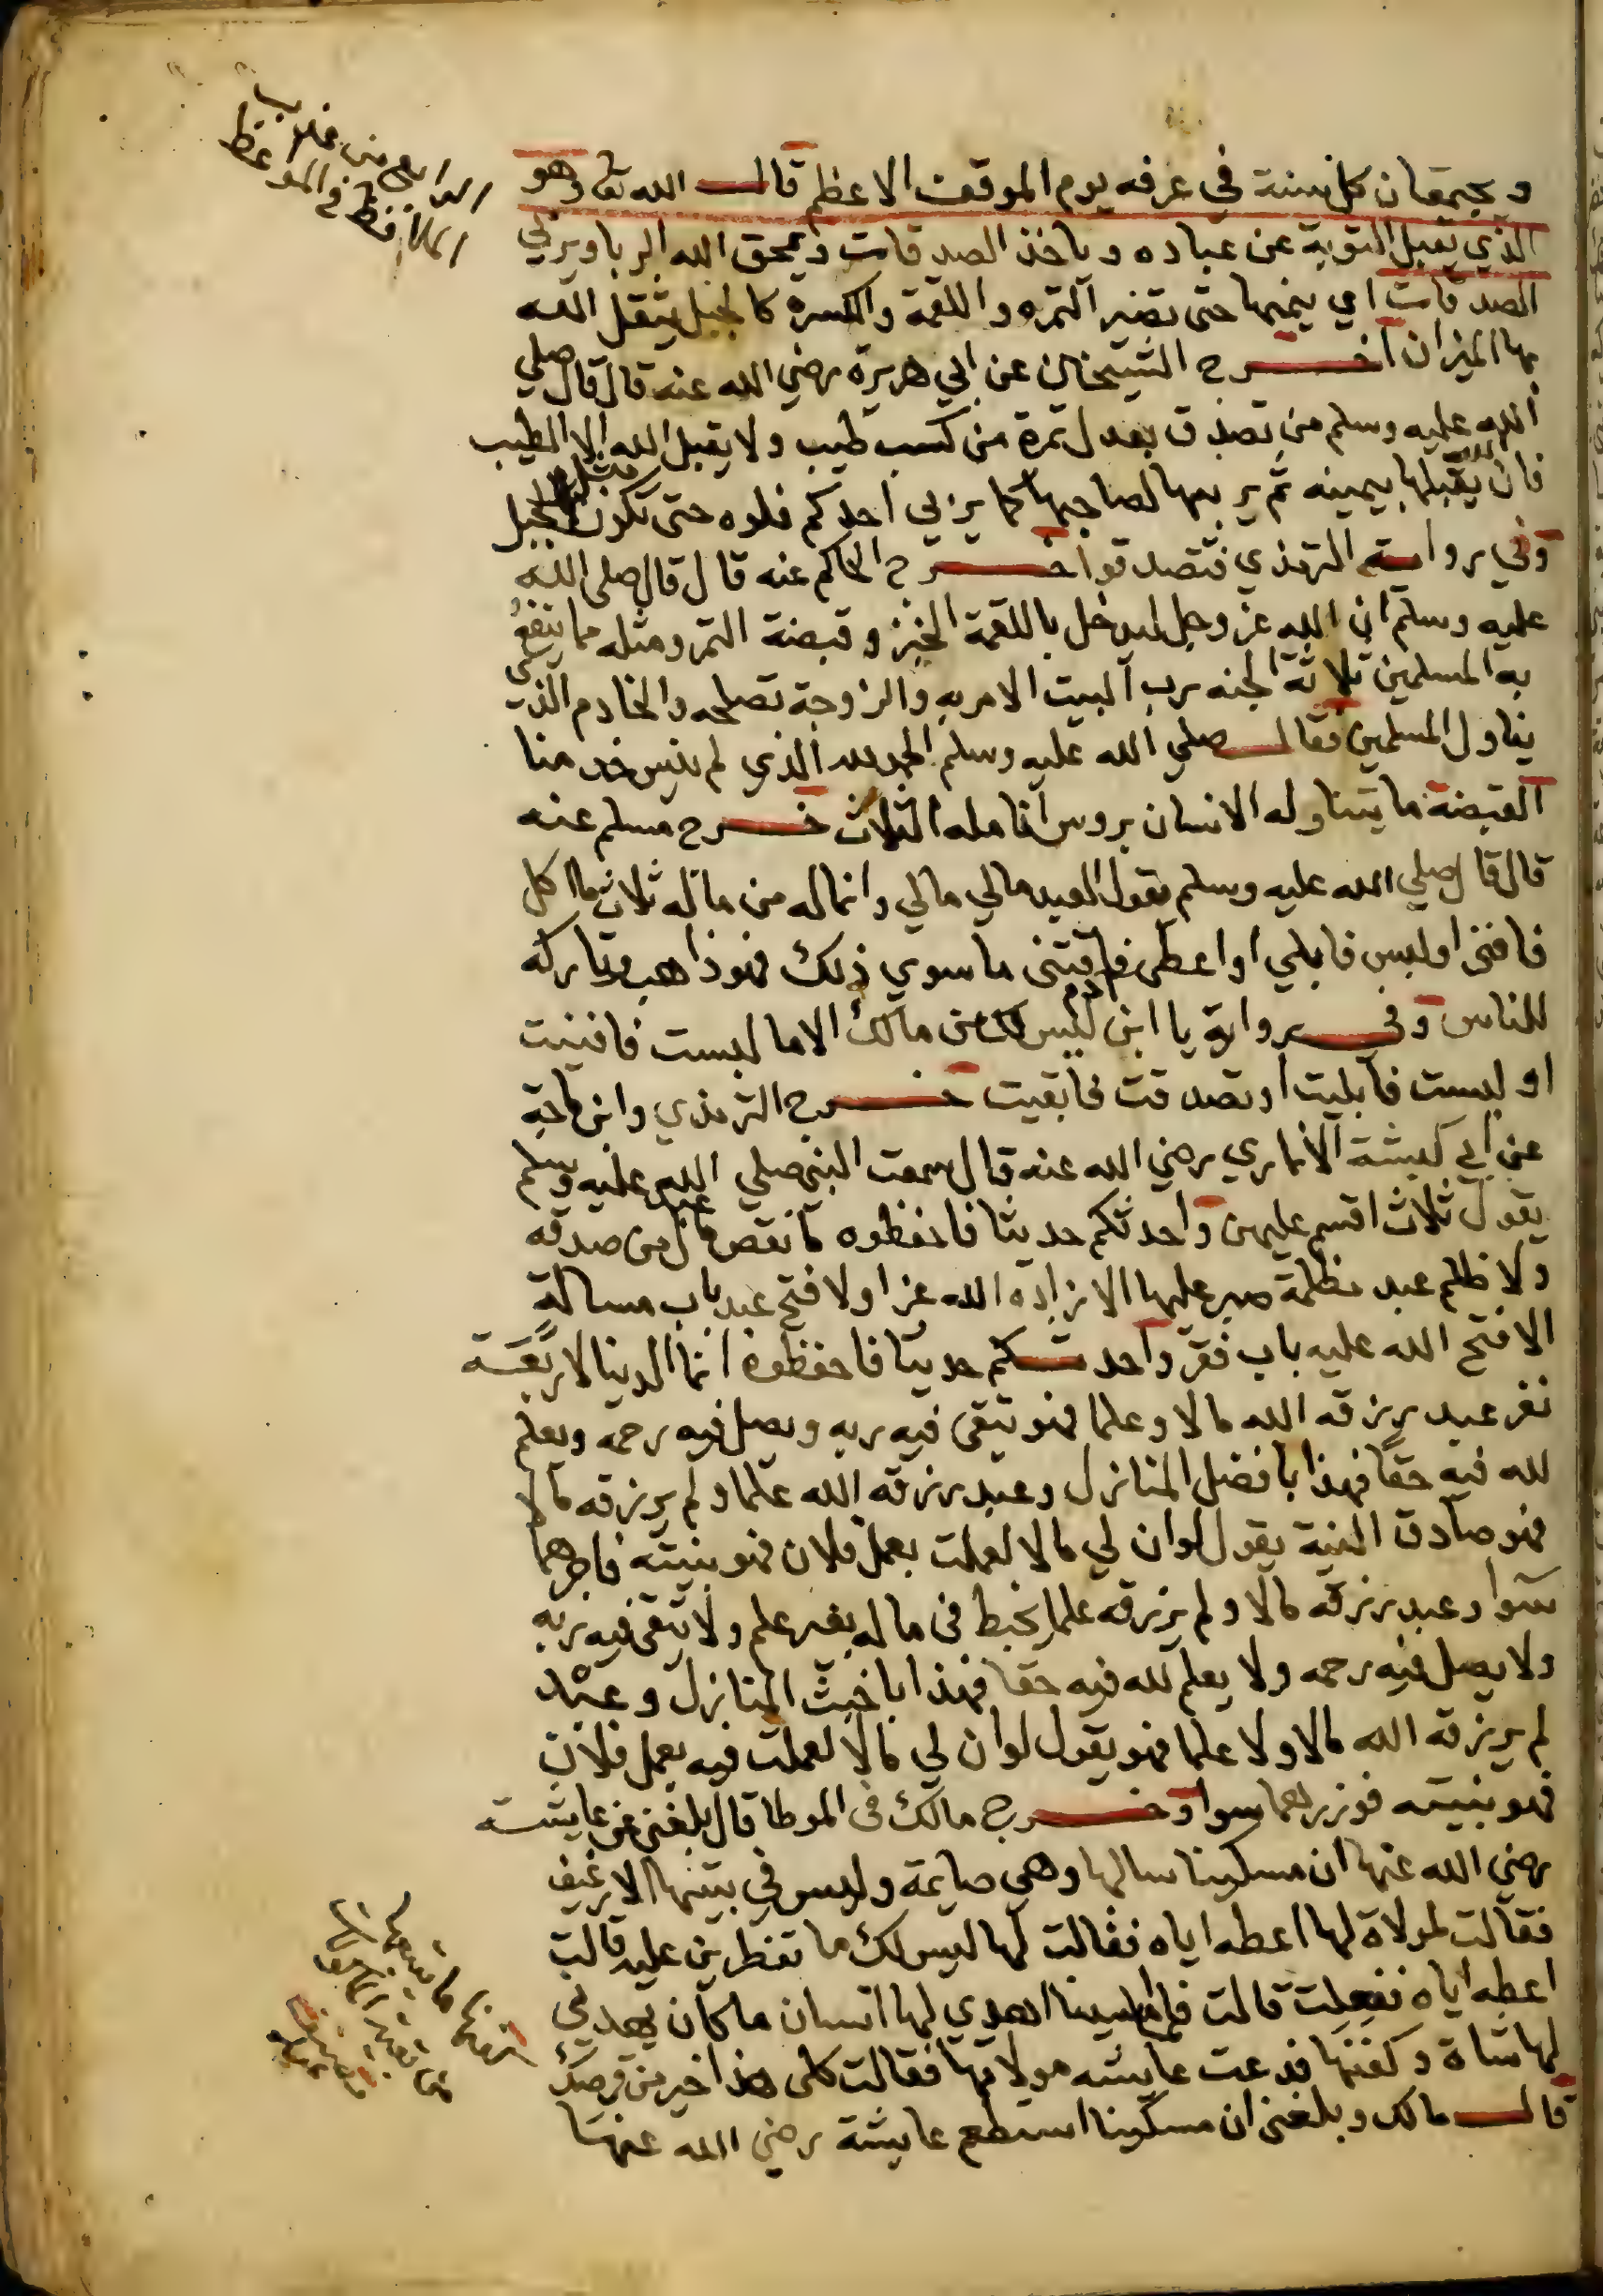 ويجتمعان كل سنة في عرفه يوم الموقف الاعظم قال الله تعا وهو
الذي يقبل التوبة عن عباده وياخذ الصدقات ويمحق الله الربا ويربي
الصدقات اي ينميها حتى تصير التمره واللقمة والكسره كالجبل يثقل الله
بها الميزان اخرج الشيخان عن ابي هريرة رضي الله عنه قال قال صلي
الله عليه وسلم من تصدق بعدل تمرة من كسب طيب ولا يقبل الله الا الطيب
فان الله يقبلها بيمينه ثم يربيها لصاحبها كما يربي احدكم فلوه حتى تكون مثل الجبل
وفي رواية الترمذي فتصدقوا خرج الحاكم عنه قال قال صلى الله
عليه وسلم ان الله عز وجل ليدخل باللقمة الخبز وقبضة التمر ومثله مما ينفع
به المسلمين ثلاثة الجنه رب البيت الامر به والزوجة تصلحه والخادم الذي
يناول المسلمين فقال صلي الله عليه وسلم الحمد لله الذي لم ينس خدمنا
القبضة ما يتناوله الانسان بروس انامله الثلاث خرج مسلم عنه
قال قال صلي الله عليه وسلم يقول العبد مالي مالي وانما له من ماله ثلاث ما اكل
فافنى او لبس فابلي او اعطى فاقتنى ما سوي ذلك فهو ذاهب وتاركه
للناس وفي رواية يا ابن ادم ليس لك من مالك الا ما لبست فافنيت
او لبست فابليت او تصدقت فابقيت خرج الترمذي وابن ماجة
عن ابي كبشة الانماري رضي الله عنه قال سمعت النبي صلي الله عليه وسلم
يقول ثلاث اقسم عليهن واحدثكم حديثا فاحفظوه ما نقص مال عبد من صدقه
ولا ظلم عبد مظلمة صبر عليها الا زاده الله عزا ولا فتح عبد باب مسالة
الا فتح الله عليه باب فقر واحدثكم حديثا فاحفظوه انما الدينا لاربعة
نفر عبد رزقه الله مالا وعلما فهو يتقى فيه ربه ويصل فيه رحمه ويعلم
لله فيه حقا فهذا بافضل المنازل وعبد رزقه الله علما ولم يرزقه مالا
فهو صادق النية يقول لو ان لي مالا لعملت بعمل فلان فهو بنيته فاجرهما
سوا وعبد رزقه مالا ولم يرزقه علما يخبط في ماله بغير علم ولا يتقى فيه ربه
ولا يصل فيه رحمه ولا يعلم لله فيه حقا فهذا باخبث المنازل وعبد
لم يرزقه الله مالا ولا علما فهو يقول لو ان لي مالا لعملت فيه بعمل فلان
فهو بنيته فوزرهما سوا وخرج مالك في الموطا قال بلغني عن عايشة
رضي الله عنها ان مسكينا سالها وهي صايمة وليس في بيتها الا رغيف
فقالت لمولاة لها اعطه اياه فقالت لها ليس لك ما تفطرين عليه قالت
اعطه اياه ففعلت قالت فلما امسينا اهدي لها انسان ما كان يهدي
لها شاة وكفنها فدعت عايشه مولاتها فقالت كلى هذا خير من قرصك
قال مالك وبلغني ان مسكينا استطعم عايشة رضي الله عنها